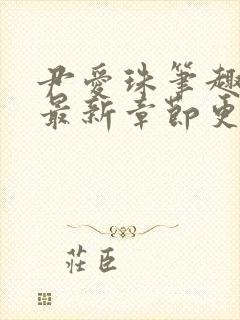 尹爱珠筆趣
最新章節更
莊臣